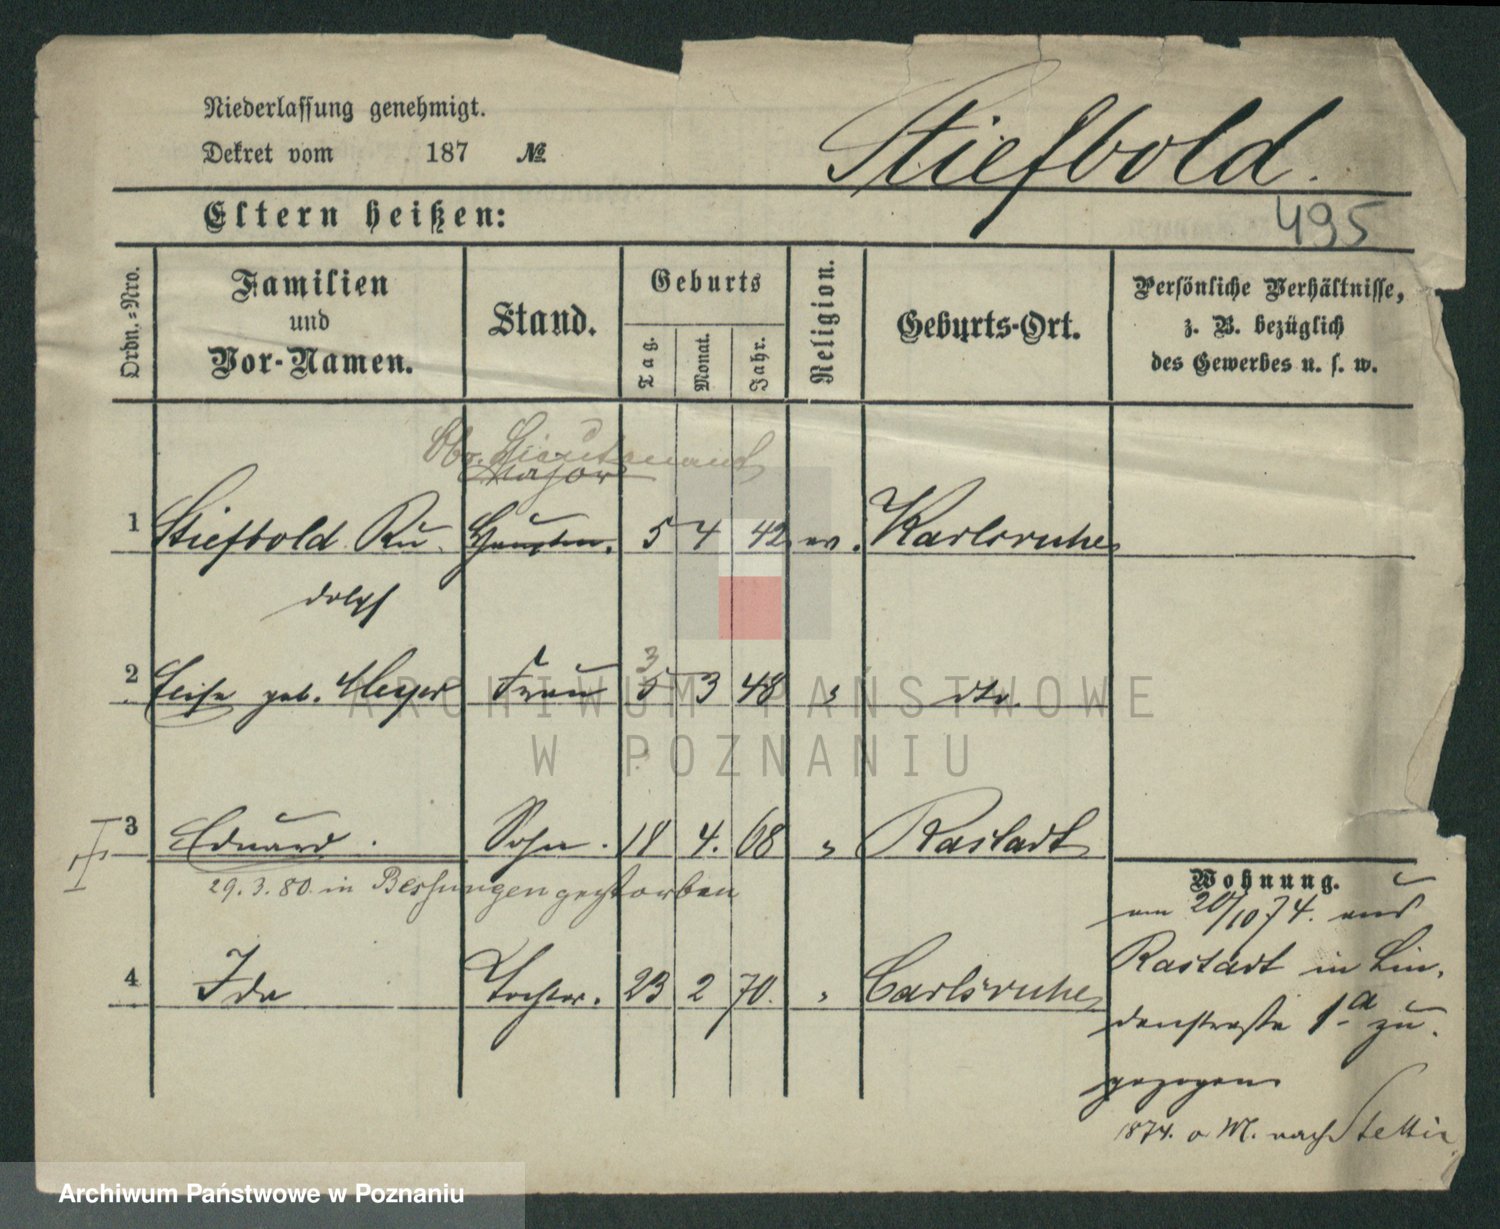 Niederlassung genehmigt.
Dekret vom 187 №
Stiefbold.
Eltern heißen:
495
Ordn.=Nro.
Familien
und
Vor-Namen.
Stand.
Geburts
Tag.
Monat.
Jahr.
Religion.
Geburts-Ort.
Persönliche Verhältnisse,
z. B. bezüglich
des Gewerbes u. s. w.
Major
1 Stiefbold Ru- Hauptm. 5 4 42 ev. Karlsruhe
dolph
3
2 Elise geb. Meyer Frau 5 3 48 " dto.
3 Eduard. Sohn. 18 4. 68 " Rastadt
29.3.80. in Bessungen gestorben
4 Ida Tochter. 23 2 70. " Carlsruhe
Wohnung.
am 20/10 74. aus
Rastadt in Lin-
denstraße 1a zu-
gezogen
1874. o M. nach Stettin
ARCHIWUM PAŃSTWOWE
W POZNANIU
Archiwum Państwowe w Poznaniu